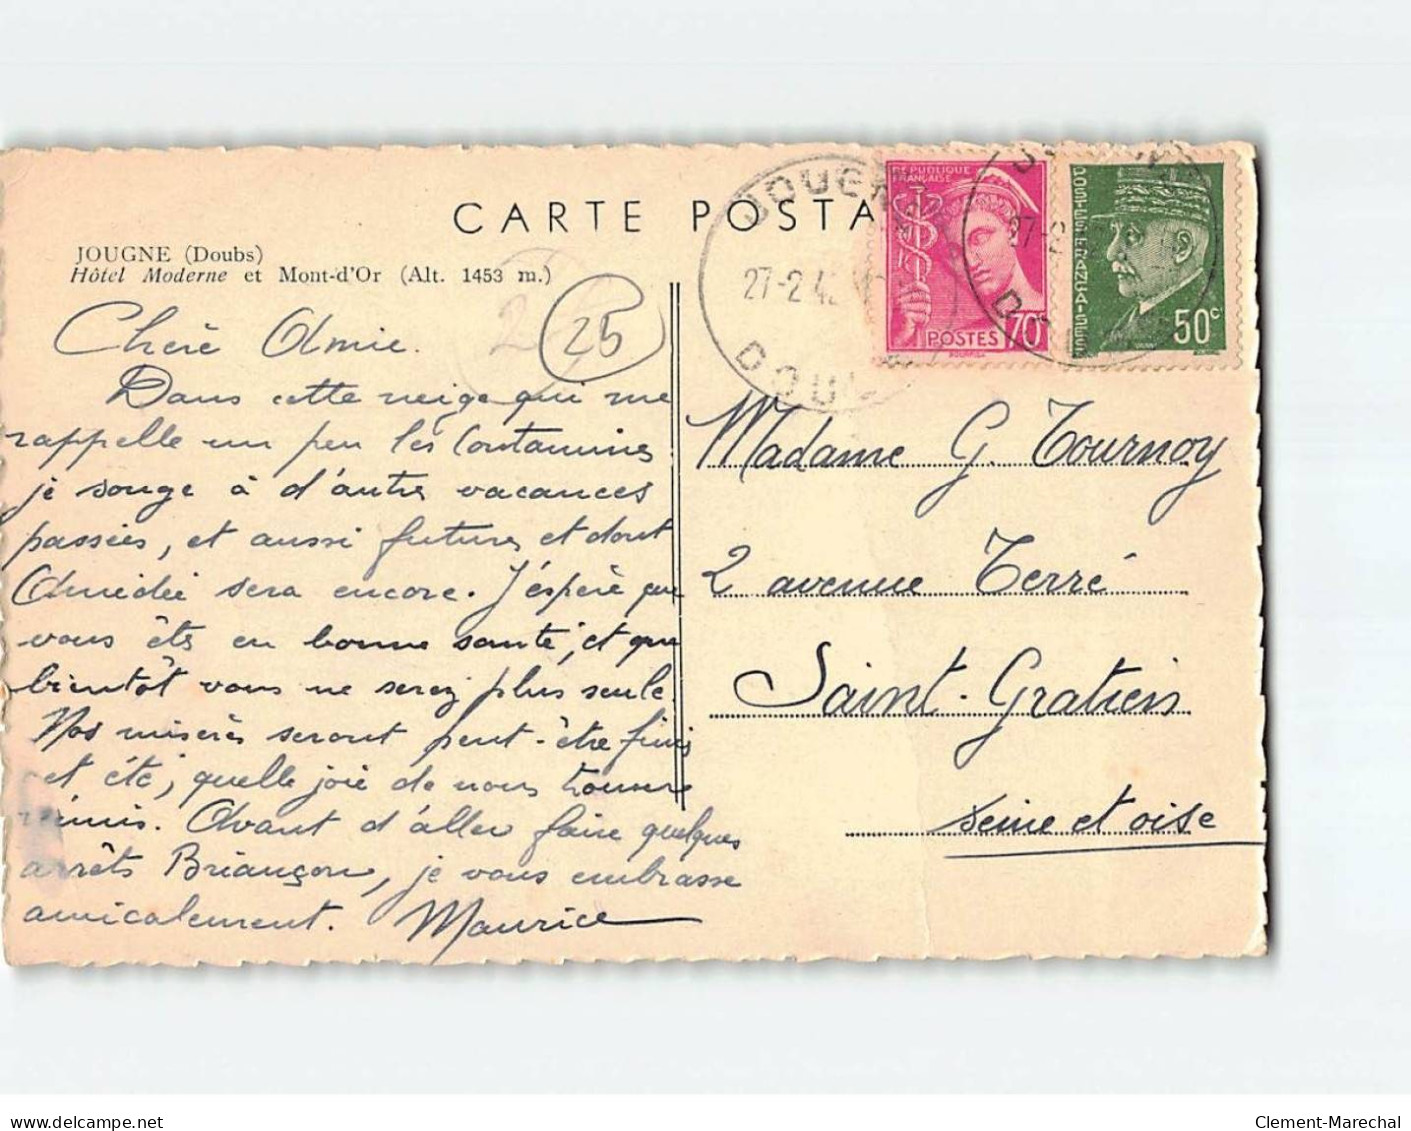 CARTE POSTA
JOUGNE (Doubs)
Hôtel Moderne et Mont-d'Or (Alt. 1453 m.)
25
JOUGNE
27-2 42
DOUBS
RÉPUBLIQUE
FRANÇAISE
POSTES 70c
27-2
POSTES FRANÇAISES
50c
Chère Amie.
Dans cette neige qui me
rappelle un peu les Contamines
je songe à d'autres vacances
passées, et aussi futures et dont
Amédée sera encore. J'espère que
vous êtes en bonne santé, et que
bientôt vous ne serez plus seule.
Nos misères seront peut-être finies
et été, quelle joie de nous trouver
réunis. Avant d'aller faire quelques
arrêts Briançon, je vous embrasse
amicalement. Maurice
Madame G. Tournoy
2 avenue Terré
Saint-Gratien
Seine et oise
delcampe.net
Clement-Marechal